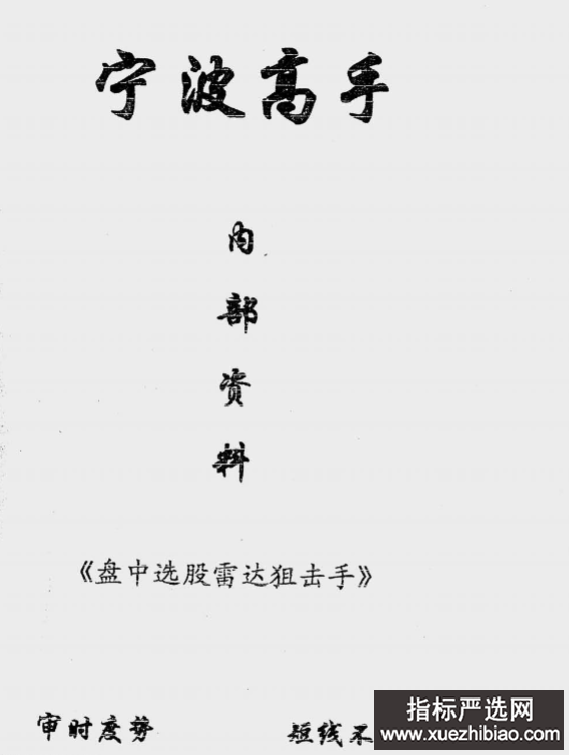 宁波高手
内
部
资
料
《盘中选股雷达狙击手》
审时度势
短线不
指标严选网
www.xuezhibiao.com